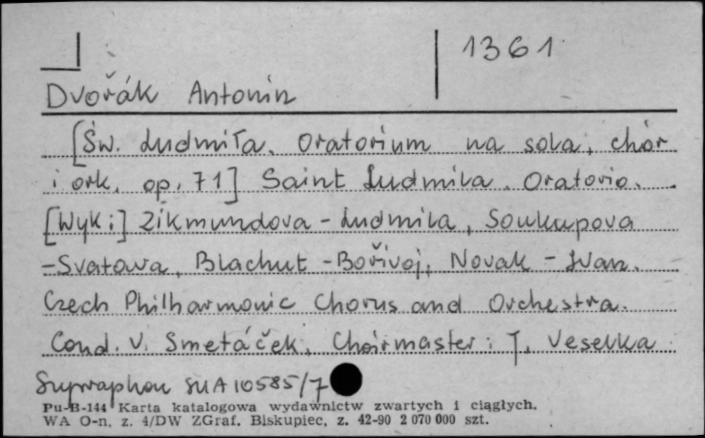 1361
Dvořák Antonin
[Św. Ludmiła. Oratorium na sola, chór
i ork. op. 71] Saint Ludmila. Oratorio.
[Wyk:] Zikmundova - Ludmila, Soukupova
- Svatava, Blachut - Bořivoj, Novak - Ivan.
Czech Philharmonic Chorus and Orchestra.
Cond. V. Smetáček, Choirmaster: J. Veselka
Supraphon SUA 10585/7
Pu-B-144 Karta katalogowa wydawnictw zwartych i ciągłych.
WA O-n. z. 4/DW ZGraf. Biskupiec, z. 42-90 2 070 000 szt.